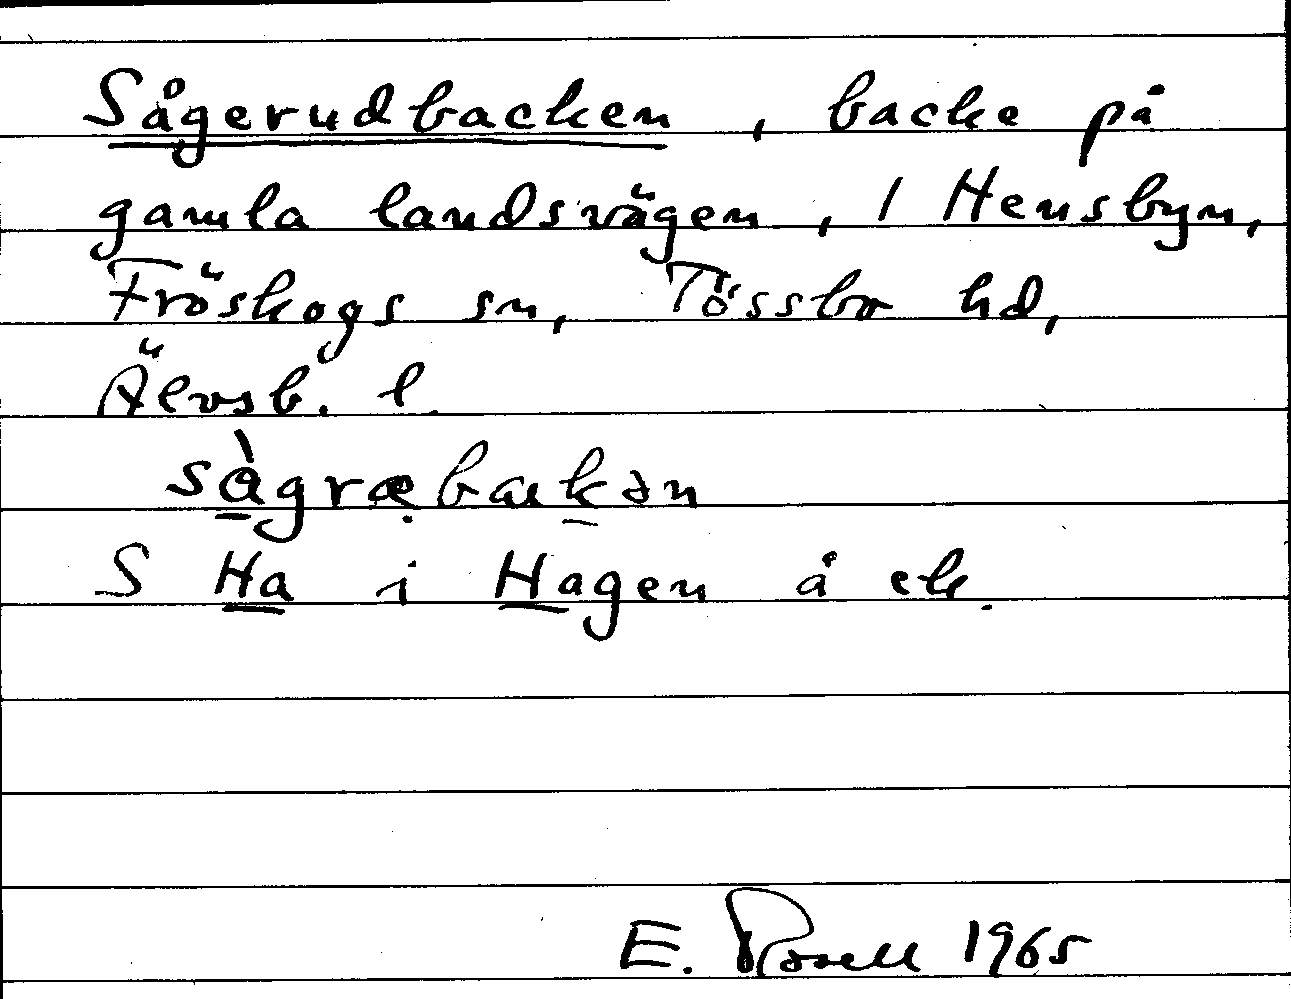 Sågerudbacken, backe på
gamla landsvägen, 1 Hensbyn,
Fröskogs sn, Tössbo hd,
Älvsb. l.
sàgræbakən
S Ha i Hagen å ek.
E. Rosell 1965